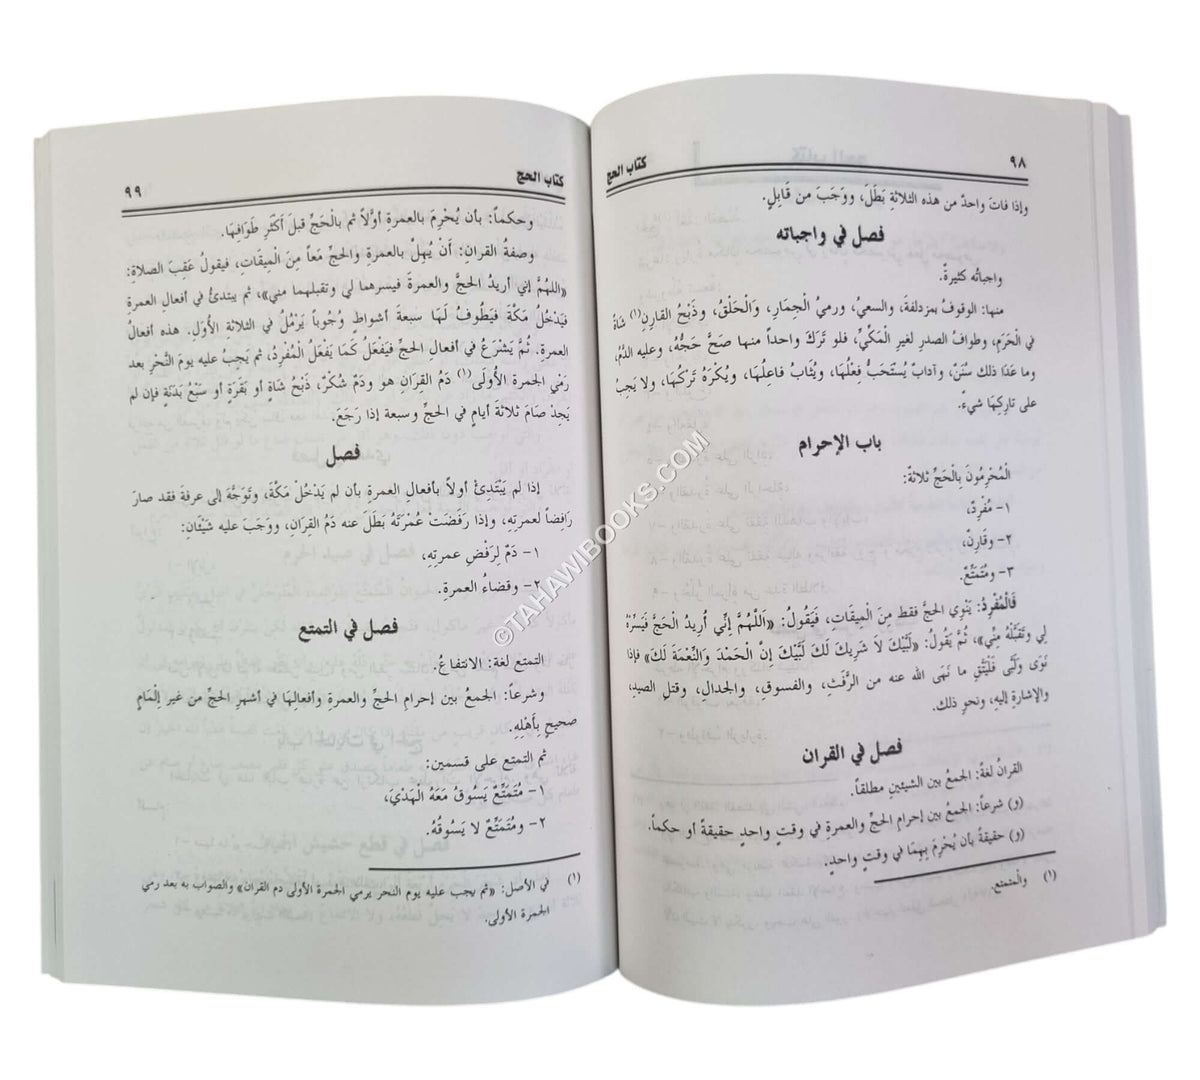 ٩٨
كتاب الحج
وإذا فاتَ واحدٌ من هذه الثلاثةِ بَطَلَ، ووَجَبَ من قَابِلٍ.
فصل في واجباته
واجباتُه كثيرةٌ.
منها: الوقوفُ بمزدلفةَ، والسعيُ، ورميُ الْجِمَارِ، وَالْحَلْقُ، وذَبْحُ القارِنِ(١) شَاةً
في الْحَرَمِ، وطوافُ الصدرِ لغيرِ الْمَكِّيِّ، فلو تَرَكَ واحداً منها صَحَّ حَجُّهُ، وعليه الدَّمُ،
وما عَدَا ذلك سُنَنٌ، وآدابٌ يُسْتَحَبُّ فِعْلُهَا، ويُثَابُ فاعِلُهَا، ويُكْرَهُ تَرْكُهَا، ولا يَجِبُ
على تاركِهَا شيءٌ.
باب الإحرام
الْمُحْرِمُونَ بِالْحَجِّ ثلاثةٌ:
١- مُفْرِدٌ،
٢- وقَارِنٌ،
٣- ومُتَمَتِّعٌ.
فَالْمُفْرِدُ: يَنْوِي الحجَّ فقط مِنَ الْمِيقَاتِ، فَيَقُولُ: «اَللَّهُمَّ إِنِّي أُرِيدُ الْحَجَّ فَيَسِّرْهُ
لِي وَتَقَبَّلْهُ مِنِّي»، ثُمَّ يَقُولُ: «لَبَّيْكَ لاَ شَرِيكَ لَكَ لَبَّيْكَ إِنَّ الْحَمْدَ وَالنِّعْمَةَ لَكَ» فإذا
نَوَى ولَبَّى فَلْيَتَّقِ ما نَهَى الله عنه من الرَّفَثِ، والفسوقِ، والجدالِ، وقتلِ الصيدِ،
والإشارةِ إليهِ، ونحوِ ذلك.
فصل في القران
القرانُ لغةً: الجمعُ بين الشيئينِ مطلقاً.
(و) شرعاً: الجمعُ بين إحرامِ الحجِّ والعمرةِ في وقتٍ واحدٍ حقيقةً أو حكماً.
(و) حقيقةً بأن يُحْرِمَ بِهِمَا في وقتٍ واحدٍ.
(١) والمتمتع.
كتاب الحج
٩٩
وحكماً: بأن يُحْرِمَ بالعمرةِ أوَّلاً ثم بالْحَجِّ قبلَ أكثَرِ طَوَافِهَا.
وصفةُ القرانِ: أَنْ يُهِلَّ بالعمرةِ والحجِّ مَعاً مِنَ الْمِيقَاتِ، فيقولُ عَقِبَ الصلاةِ:
«اللهُمَّ إني أريدُ الحجَّ والعمرةَ فيسرهما لي وتقبلهما مني»، ثم يبتدئُ في أفعالِ العمرةِ
فيَدْخُلُ مَكَّةَ فَيَطُوفُ لَهَا سبعةَ أشواطٍ وُجُوباً يَرْمُلُ في الثلاثةِ الأُوَلِ. هذه أفعالُ
العمرةِ. ثُمَّ يَشْرَعُ في أفعالِ الحجِّ فيَفْعَلُ كَمَا يَفْعَلُ الْمُفْرِدُ، ثم يَجِبُ عليه يومَ النَّحْرِ بعد
رَمْيِ الجمرةِ الأُولَى(١) دَمُ القِرَانِ هو ودَمُ شُكْرٍ، ذَبْحُ شَاةٍ أو بَقَرَةٍ أو سَبْعُ بَدَنَةٍ فإن لم
يَجِدْ صَامَ ثلاثةَ أيامٍ في الحجِّ وسبعة إذا رَجَعَ.
فصل
إذا لم يَبْتَدِئْ أولاً بأفعالِ العمرةِ بأن لم يَدْخُلْ مَكَّةَ، وتَوَجَّهَ إلى عرفةَ فقد صارَ
رَافِضاً لعمرتِهِ، وإذا رَفَضَتْ عُمْرَتُهُ بَطَلَ عنه دَمُ القِرَانِ، ووَجَبَ عليه شَيْئَانِ:
١- دَمٌ لِرَفْضِ عمرتِهِ،
٢- وقضاءُ العمرةِ.
فصل في التمتع
التمتع لغة: الانتفاعُ.
وشرعاً: الجمعُ بين إحرامِ الحجِّ والعمرةِ وأفعالِهَا في أشهرِ الحجِّ من غيرِ إِلْمَامٍ
صحيحٍ بِأَهْلِهِ.
ثم التمتع على قسمين:
١- مُتَمَتِّعٌ يَسُوقُ مَعَهُ الْهَدْيَ،
٢- ومُتَمَتِّعٌ لا يَسُوقُهُ.
(١) في الأصل: «ثم يجب عليه يوم النحر يرمي الجمرة الأولى دم القران» والصواب به بعد رمي
الجمرة الأولى.
©TAHAWIBOOKS.COM